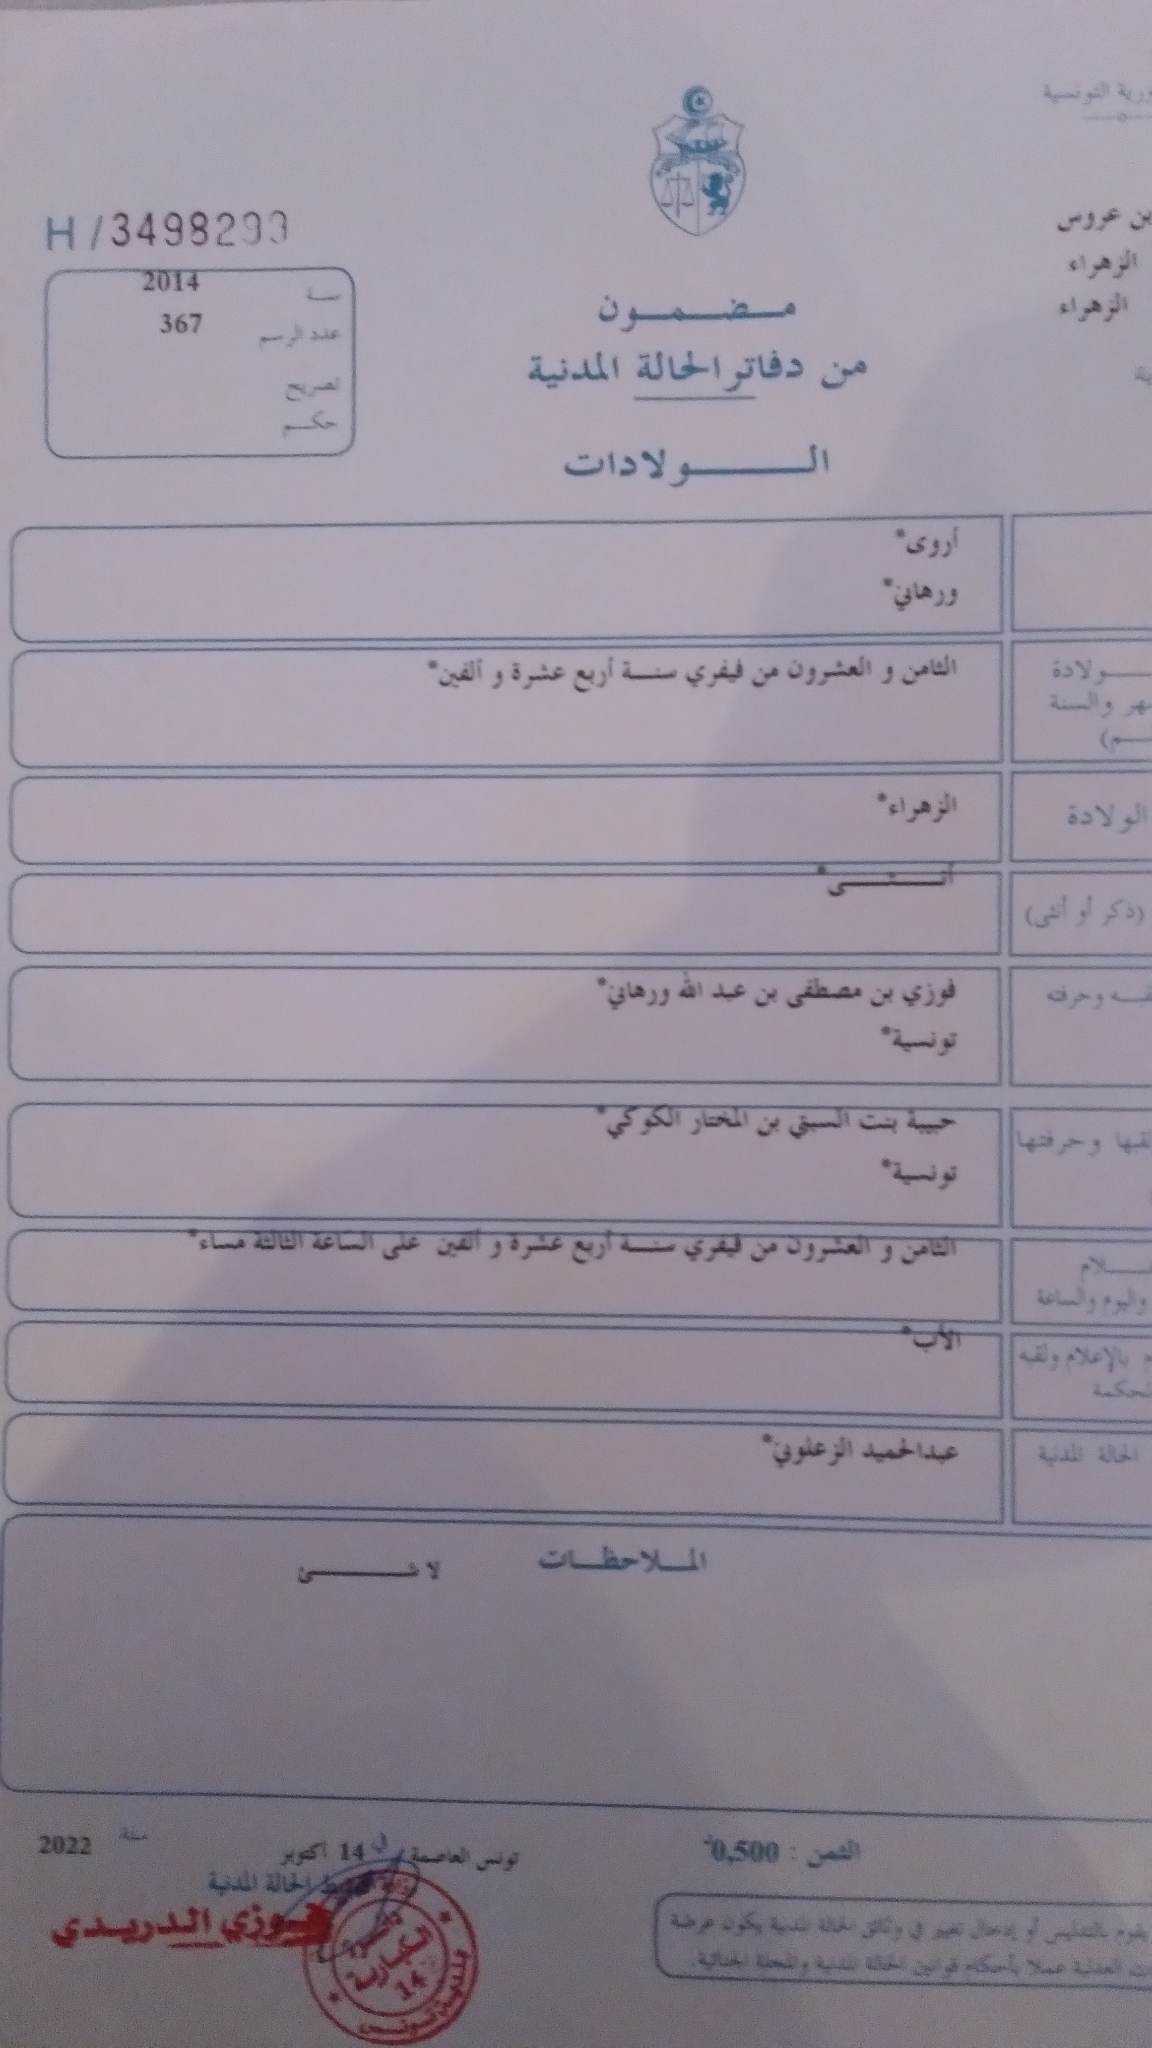 ورية التونسية
بن عروس
الزهراء
الزهراء
ية
H / 3498293
سنة 2014
عدد الرسم 367
تصريح
حكم
مضمون
من دفاتر الحالة المدنية
الولادات
أروى*
ورهاني*
ولادة
هر والسنة
م)
الثامن و العشرون من فيفري سنة أربع عشرة و ألفين*
الولادة
الزهراء*
(ذكر أو أنثى)
أنثى*
قبه وحرفته
فوزي بن مصطفى بن عبد الله ورهاني*
تونسية*
لقبها وحرفتها
حبيبة بنت السبتي بن المختار الكوكي*
تونسية*
لام
واليوم والساعة
الثامن و العشرون من فيفري سنة أربع عشرة و ألفين على الساعة الثالثة مساء*
م بالإعلام ولقبه
لمحكمة
الأب*
الحالة المدنية
عبدالحميد الزعلوني*
الملاحظات
لا شئ
الثمن : 0,500
تونس العاصمة في 14 أكتوبر سنة 2022
ضابط الحالة المدنية
فوزي الدريدي
بلدية تونس
14
يقوم بالتدليس أو إدخال تغيير في وثائق الحالة المدنية يكون عرضة
ت العدلية عملا بأحكام قوانين الحالة المدنية والمجلة الجنائية.